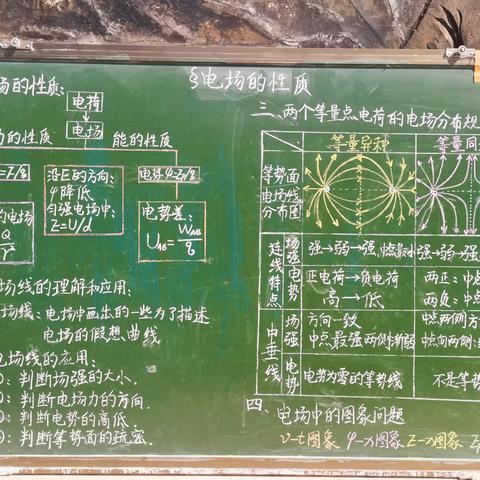 §电场的性质
场的性质:
电荷
电场
力的性质
能的性质
沿E的方向:
φ降低
匀强电场中:
E=U/d
电势差:
的电场
场线的理解和应用:
场线: 电场中画出的一些为了描述
电场的假想曲线
电场线的应用:
: 判断场强的大小.
: 判断电场力的方向.
: 判断电势的高低.
: 判断等势面的疏密.
三、两个等量点电荷的电场分布规
等量异种
等量同
等势面
电场线
分布图
连线特点
场强
强→弱→强、中点最小
强→弱→强
电势
正电荷→负电荷
高→低
两正: 中点
两负: 中点
中垂线
场强
方向一致
中点最强两侧渐弱
中点两侧方
中点向两侧:
电势
电势为零的等势线
不是等势
四、电场中的图象问题
v-t图象 φ-x图象 E-x图象